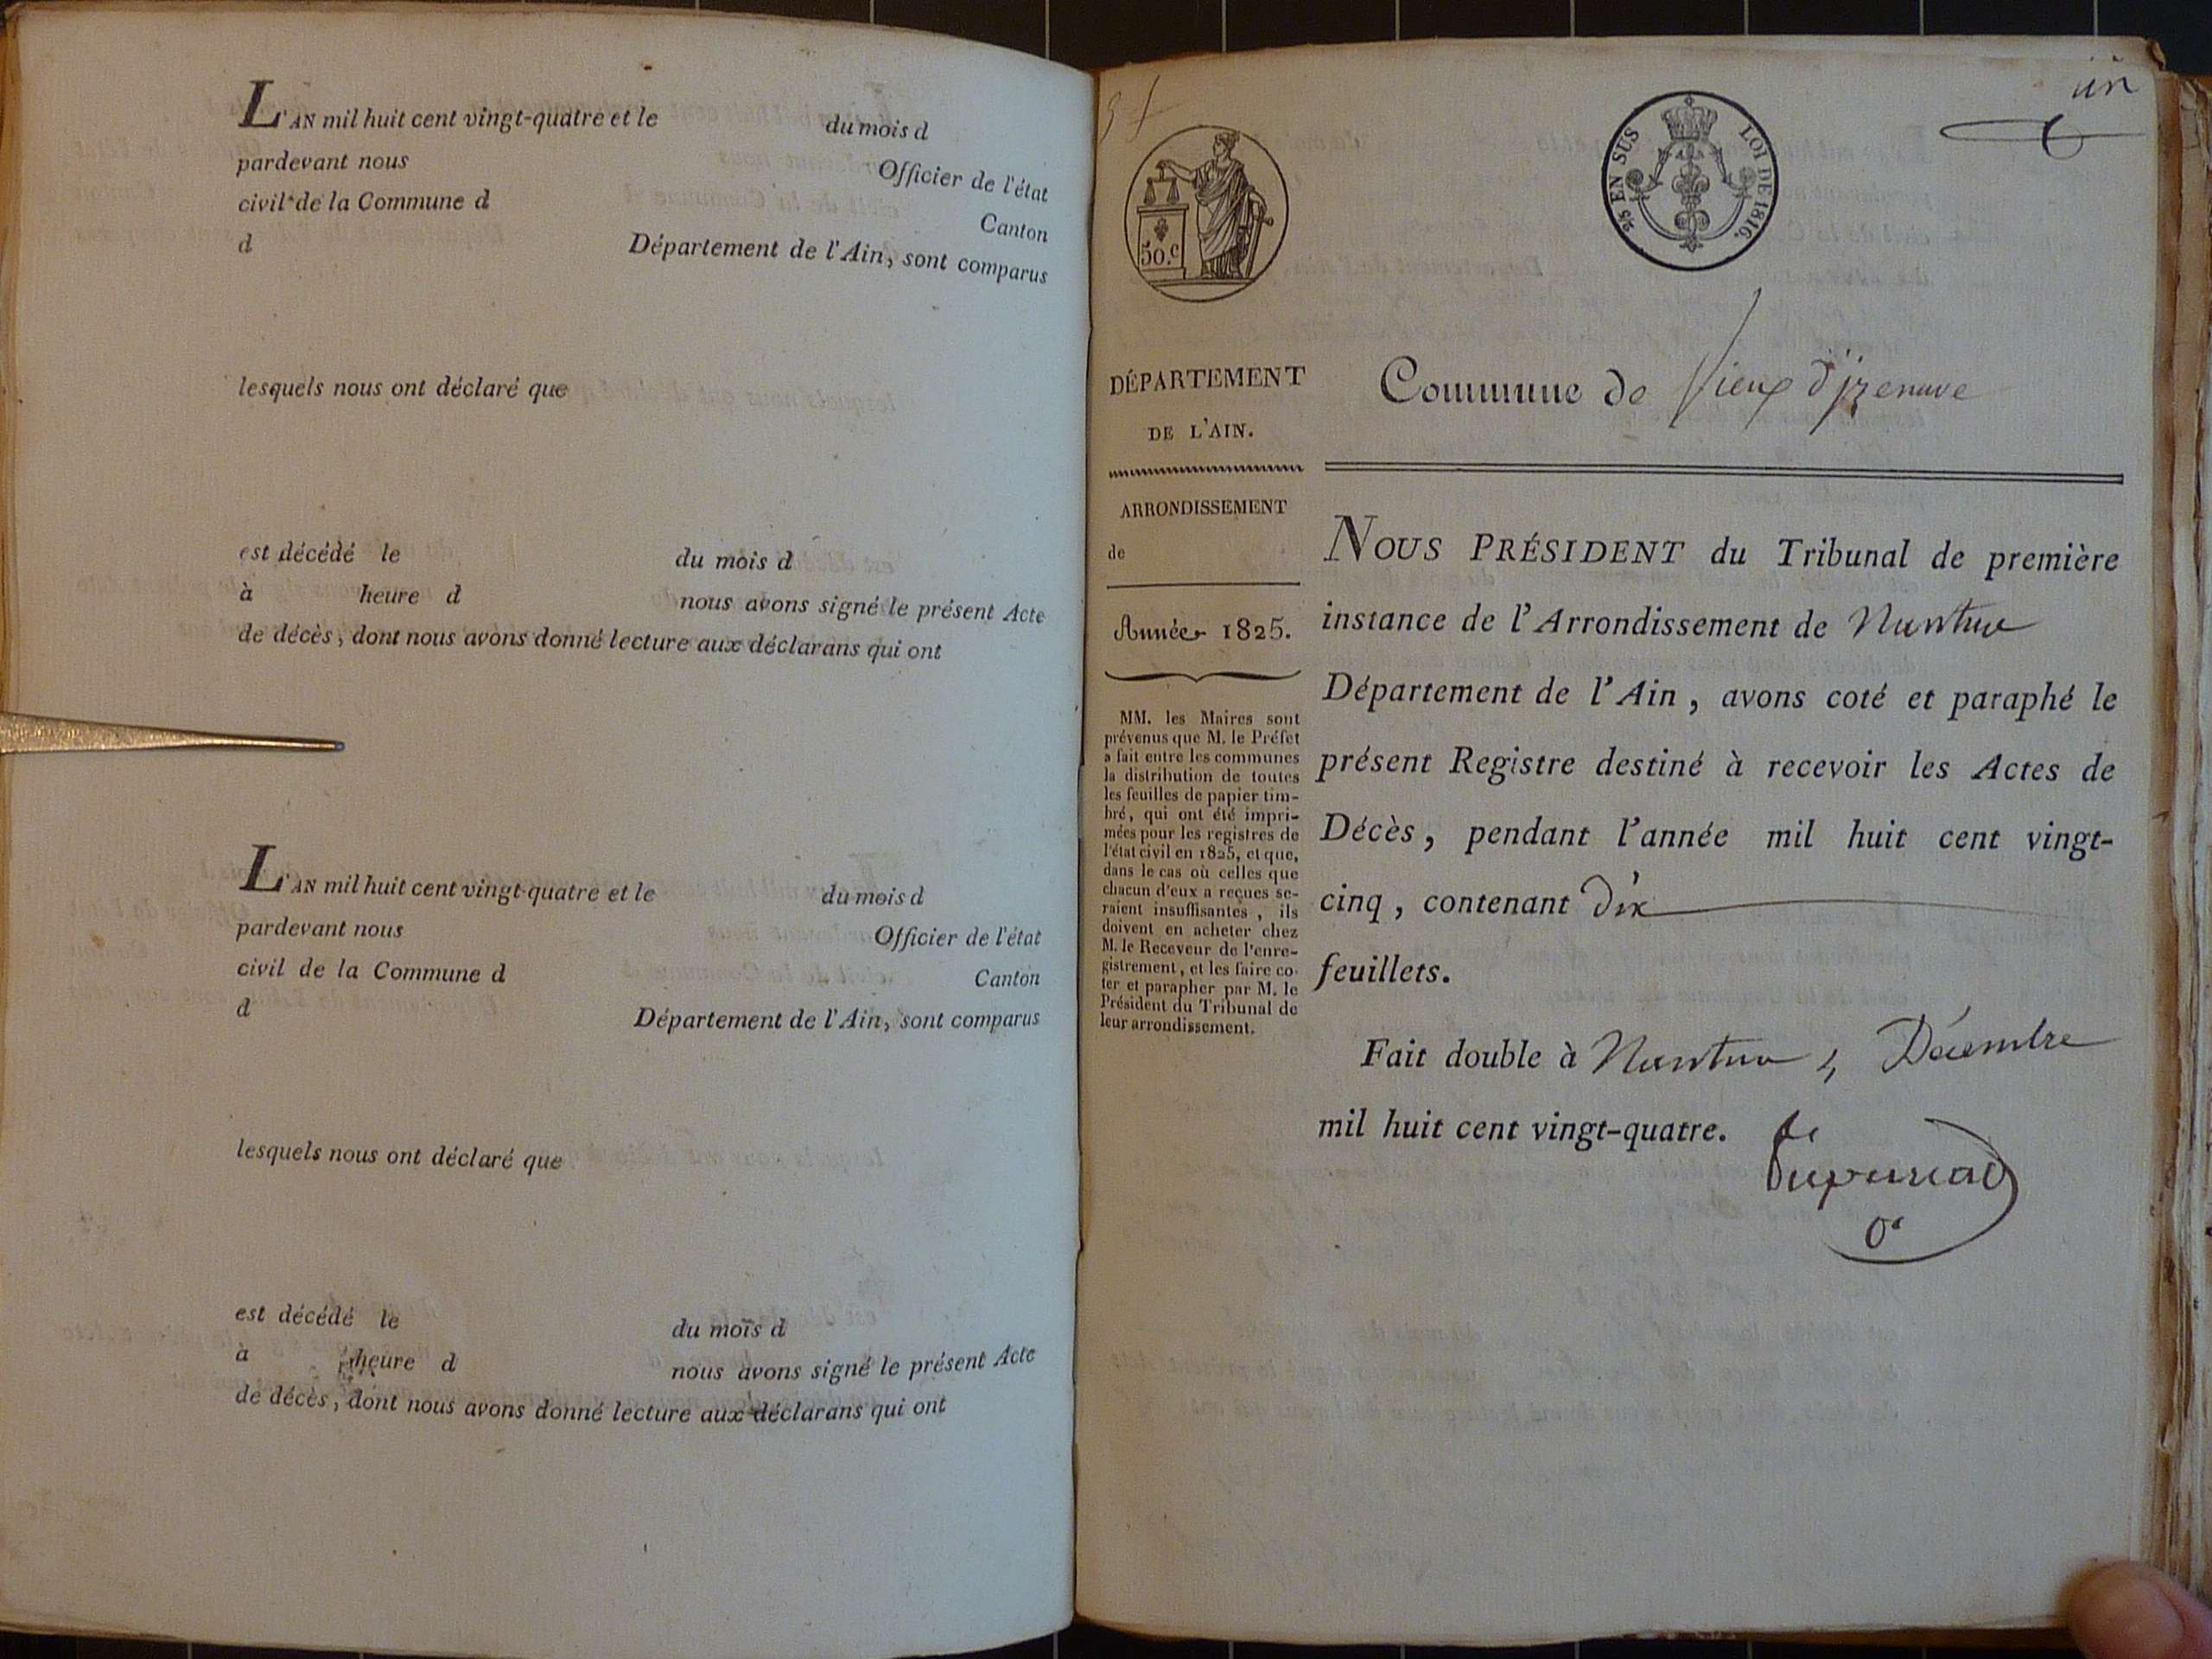 L'AN mil huit cent vingt-quatre et le du mois d
pardevant nous Officier de l'état
civil de la Commune d Canton
d Département de l'Ain, sont comparus
lesquels nous ont déclaré que
est décédé le du mois d
à heure d nous avons signé le présent Acte
de décès, dont nous avons donné lecture aux déclarans qui ont
L'AN mil huit cent vingt-quatre et le du mois d
pardevant nous Officier de l'état
civil de la Commune d Canton
d Département de l'Ain, sont comparus
lesquels nous ont déclaré que
est décédé le du mois d
à heure d nous avons signé le présent Acte
de décès, dont nous avons donné lecture aux déclarans qui ont
un
50.c
EN SUS LOI DE 1816.
DÉPARTEMENT
DE L'AIN.
ARRONDISSEMENT
de
Année 1825.
MM. les Maires sont
prévenus que M. le Préfet
a fait entre les communes
la distribution de toutes
les feuilles de papier tim-
bré, qui ont été impri-
mées pour les registres de
l'état civil en 1825, et que,
dans le cas où celles que
chacun d'eux a reçues se-
raient insuffisantes, ils
doivent en acheter chez
M. le Receveur de l'enre-
gistrement, et les faire co-
ter et parapher par M. le
Président du Tribunal de
leur arrondissement.
Commune de Vieux d'izenave
NOUS PRÉSIDENT du Tribunal de première
instance de l'Arrondissement de Nantua
Département de l'Ain, avons coté et paraphé le
présent Registre destiné à recevoir les Actes de
Décès, pendant l'année mil huit cent vingt-
cinq, contenant dix
feuillets.
Fait double à Nantua Décembre
mil huit cent vingt-quatre.